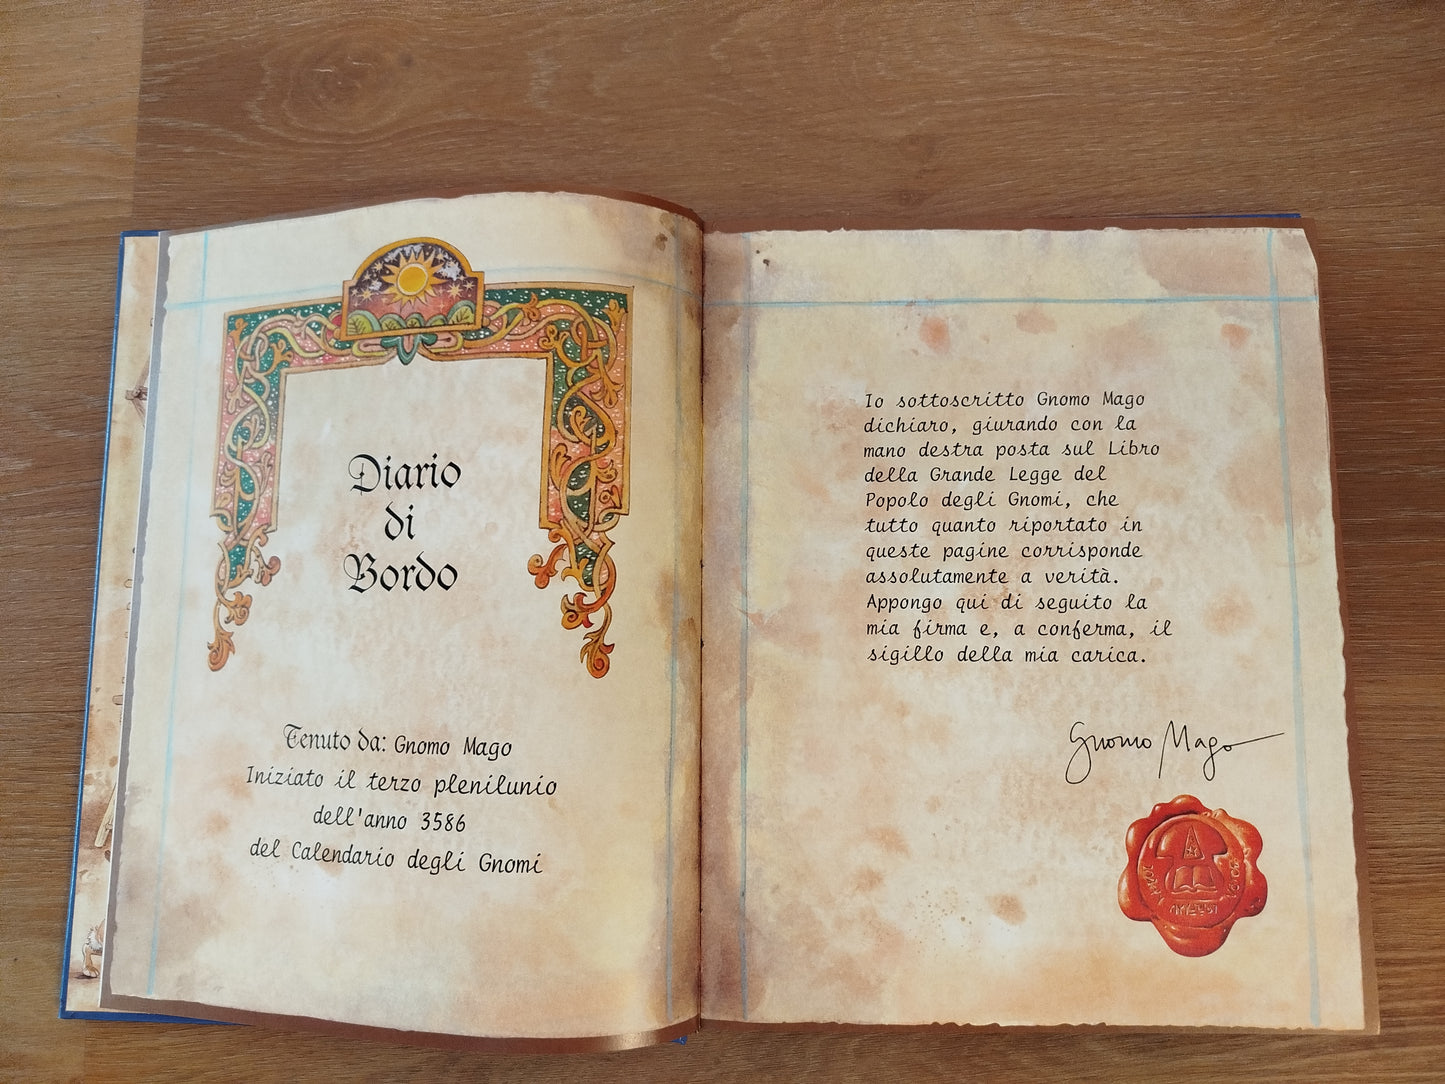 Diario
di
Bordo
Tenuto da: Gnomo Mago
Iniziato il terzo plenilunio
dell'anno 3586
del Calendario degli Gnomi
Io sottoscritto Gnomo Mago
dichiaro, giurando con la
mano destra posta sul Libro
della Grande Legge del
Popolo degli Gnomi, che
tutto quanto riportato in
queste pagine corrisponde
assolutamente a verità.
Appongo qui di seguito la
mia firma e, a conferma, il
sigillo della mia carica.
Gnomo Mago